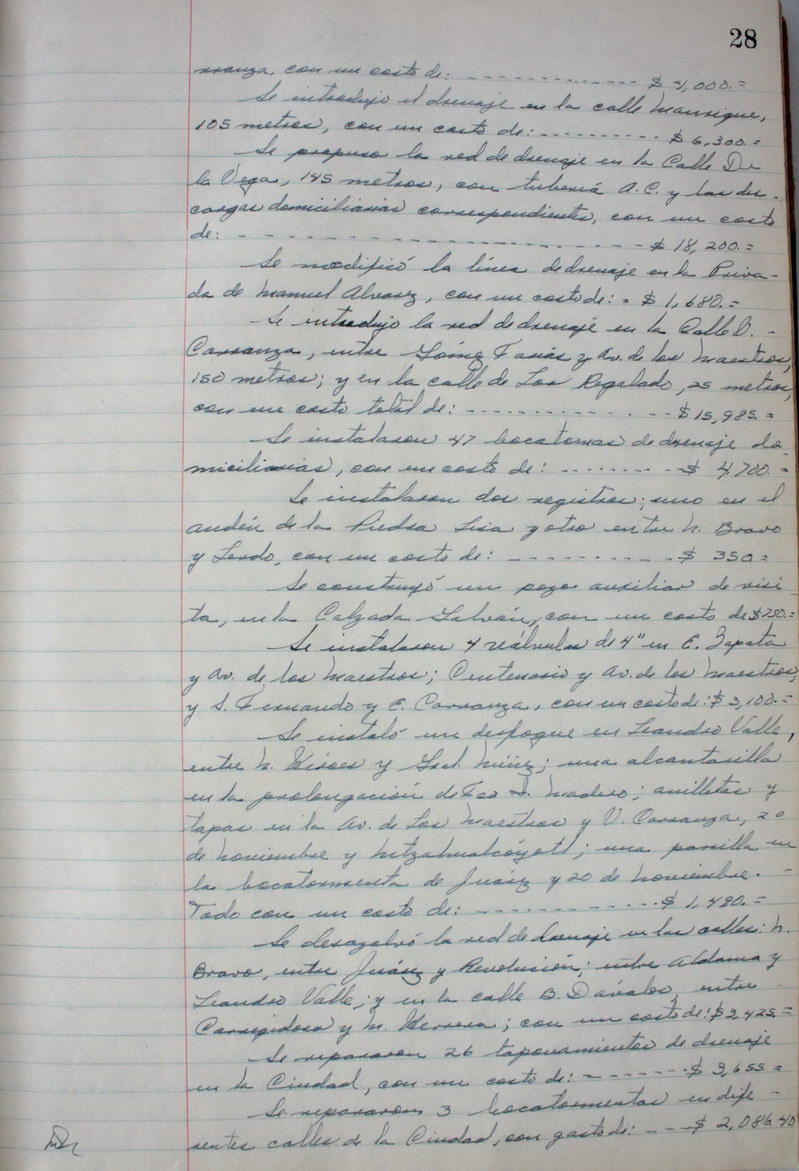 28
rranza, con un costo de: - - - - - - - - - - - - - - $ 4,000.=
Se introdujo el drenaje en la calle Manrique,
105 metros, con un costo de: - - - - - - - - - - $ 6,300.=
Se propuso la red de drenaje en la Calle De
la Vega, 145 metros, con tubería A.C. y las des-
cargas domiciliarias correspondientes, con un costo
de: - - - - - - - - - - - - - - - - - - - - - - - - - - - - $ 18,200.=
Se modificó la línea de drenaje en la Priva-
da de Manuel Alvarez, con un costo de: - $ 1,680.=
Se introdujo la red de drenaje en la Calle V. -
Carranza, entre Gómez Farías y Av. de los Maestros,
150 metros; y en la calle de Regalado, 25 metros,
con un costo total de: - - - - - - - - - - - - - $ 15,985.=
Se instalaron 47 bocatomas de drenaje do-
miciliarias, con un costo de: - - - - - - - - $ 4.700.=
Se instalaron dos registros; uno en el
andén de la Piedra Lisa y otro entre N. Bravo
y Lerdo, con un costo de: - - - - - - - - - - $ 350 =
Se construyó un pozo auxiliar de visi-
ta, en la Calzada Galván, con un costo de
Se instalaron 4 válvulas de 4" en E. Zapata
y Av. de los Maestros; Centenario y Av. de los Maestros,
y S. Fernando y E. Carranza, con un costo de: $ 3,100.=
Se instaló un desfogue en Leandro Valle,
entre N. y
una alcantarilla
en la prolongación de Fco. I. Madero; anilletas y
tapas en la Av. de Los Maestros y V. Carranza, 20
de Noviembre y Netzahualcóyotl; una parrilla en
la bocatormenta de Juárez y 20 de Noviembre. -
Todo con un costo de: - - - - - - - - - - - - $ 1,490.=
Se desazolvó la red de drenaje en las calles: N.
Bravo, entre Juárez y Revolución; entre Aldama y
Leandro Valle; y en la calle B. Dávalos, entre
Corregidora y M. Herrera; con un costo de: $ 2,425.=
Se repararon 26 taponamientos de drenaje
en la Ciudad, con un costo de: - - - - - - - $ 3,655 =
Se repararon 3 bocatormentas en dife -
rentes calles de la Ciudad, con gasto de: - - - $ 2,086.40